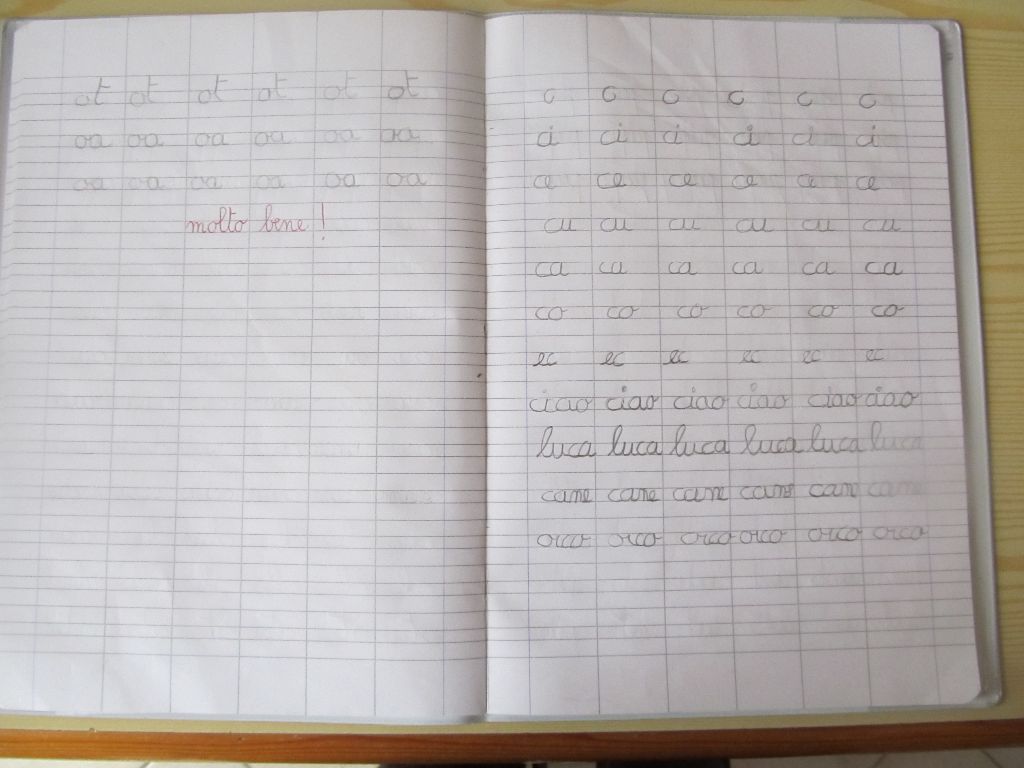 ot ot ot ot ot ot
oa oa oa oa oa oa
oa oa oa oa oa oa
molto bene!
c c c c c c
ci ci ci ci ci ci
ce ce ce ce ce ce
cu cu cu cu cu cu
ca ca ca ca ca ca
co co co co co co
ec ec ec ec ec ec
ciao ciao ciao ciao ciao ciao
luca luca luca luca luca luca
cane cane cane cane cane cane
orco orco orco orco orco orco